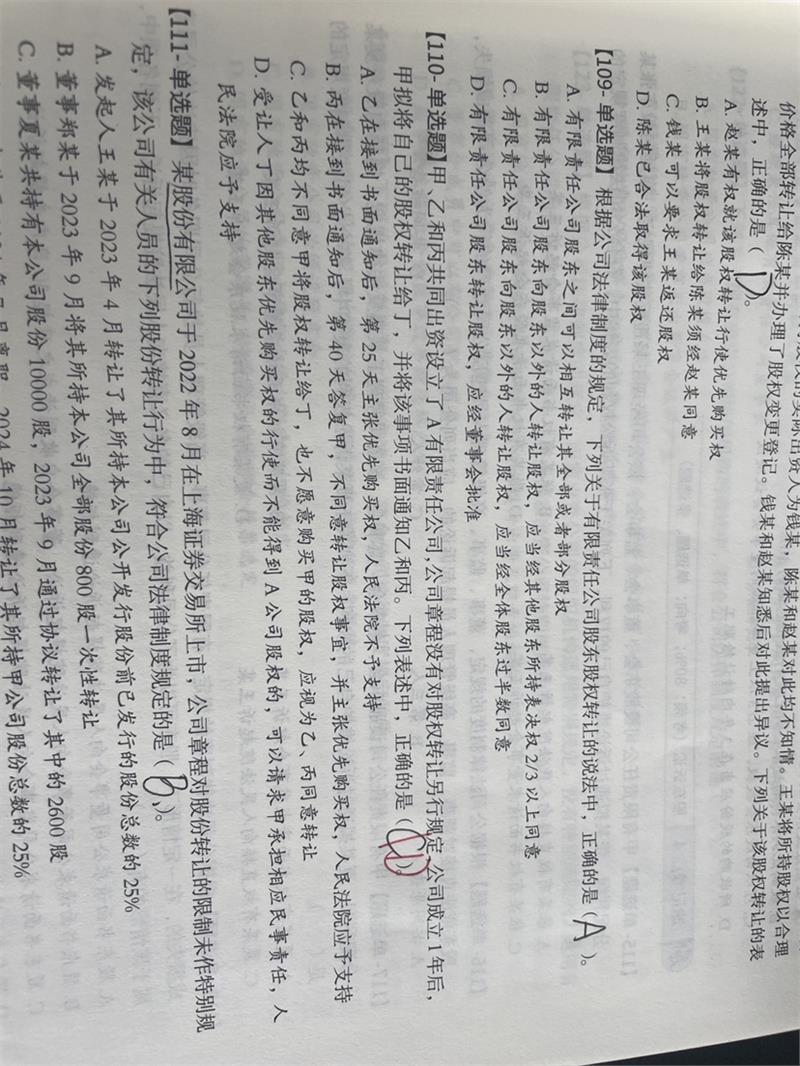 股权的实际出资人为钱某，陈某和赵某对此均不知情。王某将所持股权以合理
价格全部转让给陈某并办理了股权变更登记。钱某和赵某知悉后对此提出异议。下列关于该股权转让的表
述中，正确的是（D）。
A. 赵某有权就该股权转让行使优先购买权
B. 王某将股权转让给陈某须经赵某同意
C. 钱某可以要求王某返还股权
D. 陈某已合法取得该股权
【109-单选题】根据公司法律制度的规定，下列关于有限责任公司股东股权转让的说法中，正确的是（A）。
A. 有限责任公司股东之间可以相互转让其全部或者部分股权
B. 有限责任公司股东向股东以外的人转让股权，应当经其他股东所持表决权 2/3 以上同意
C. 有限责任公司股东向股东以外的人转让股权，应当经全体股东过半数同意
D. 有限责任公司股东转让股权，应经董事会批准
【110-单选题】甲、乙和丙共同出资设立了 A 有限责任公司，公司章程没有对股权转让另行规定，公司成立 1 年后，
甲拟将自己的股权转让给丁，并将该事项书面通知乙和丙。下列表述中，正确的是（D）。
A. 乙在接到书面通知后，第 25 天主张优先购买权，人民法院不予支持
B. 丙在接到书面通知后，第 40 天答复甲，不同意转让股权事宜，并主张优先购买权，人民法院应予支持
C. 乙和丙均不同意甲将股权转让给丁，也不愿意购买甲的股权，应视为乙、丙同意转让
D. 受让人丁因其他股东优先购买权的行使而不能得到 A 公司股权的，可以请求甲承担相应民事责任，人
民法院应予支持
【111-单选题】某股份有限公司于 2022 年 8 月在上海证券交易所上市，公司章程对股份转让的限制未作特别规
定，该公司有关人员的下列股份转让行为中，符合公司法律制度规定的是（B）。
A. 发起人王某于 2023 年 4 月转让了其所持本公司公开发行股份前已发行的股份总数的 25%
B. 董事郑某于 2023 年 9 月将其所持本公司全部股份 800 股一次性转让
C. 董事夏某共持有本公司股份 10000 股，2023 年 9 月通过协议转让了其中的 2600 股
年 7 月离职，2024 年 10 月转让了其所持甲公司股份总数的 25%